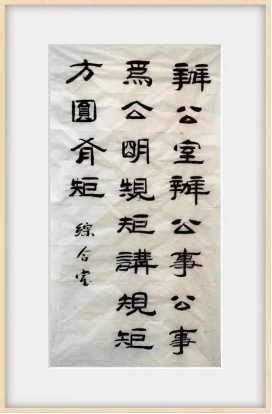 辦公室辦公事公事
爲公明規矩講規矩
方圓有矩
綜合室